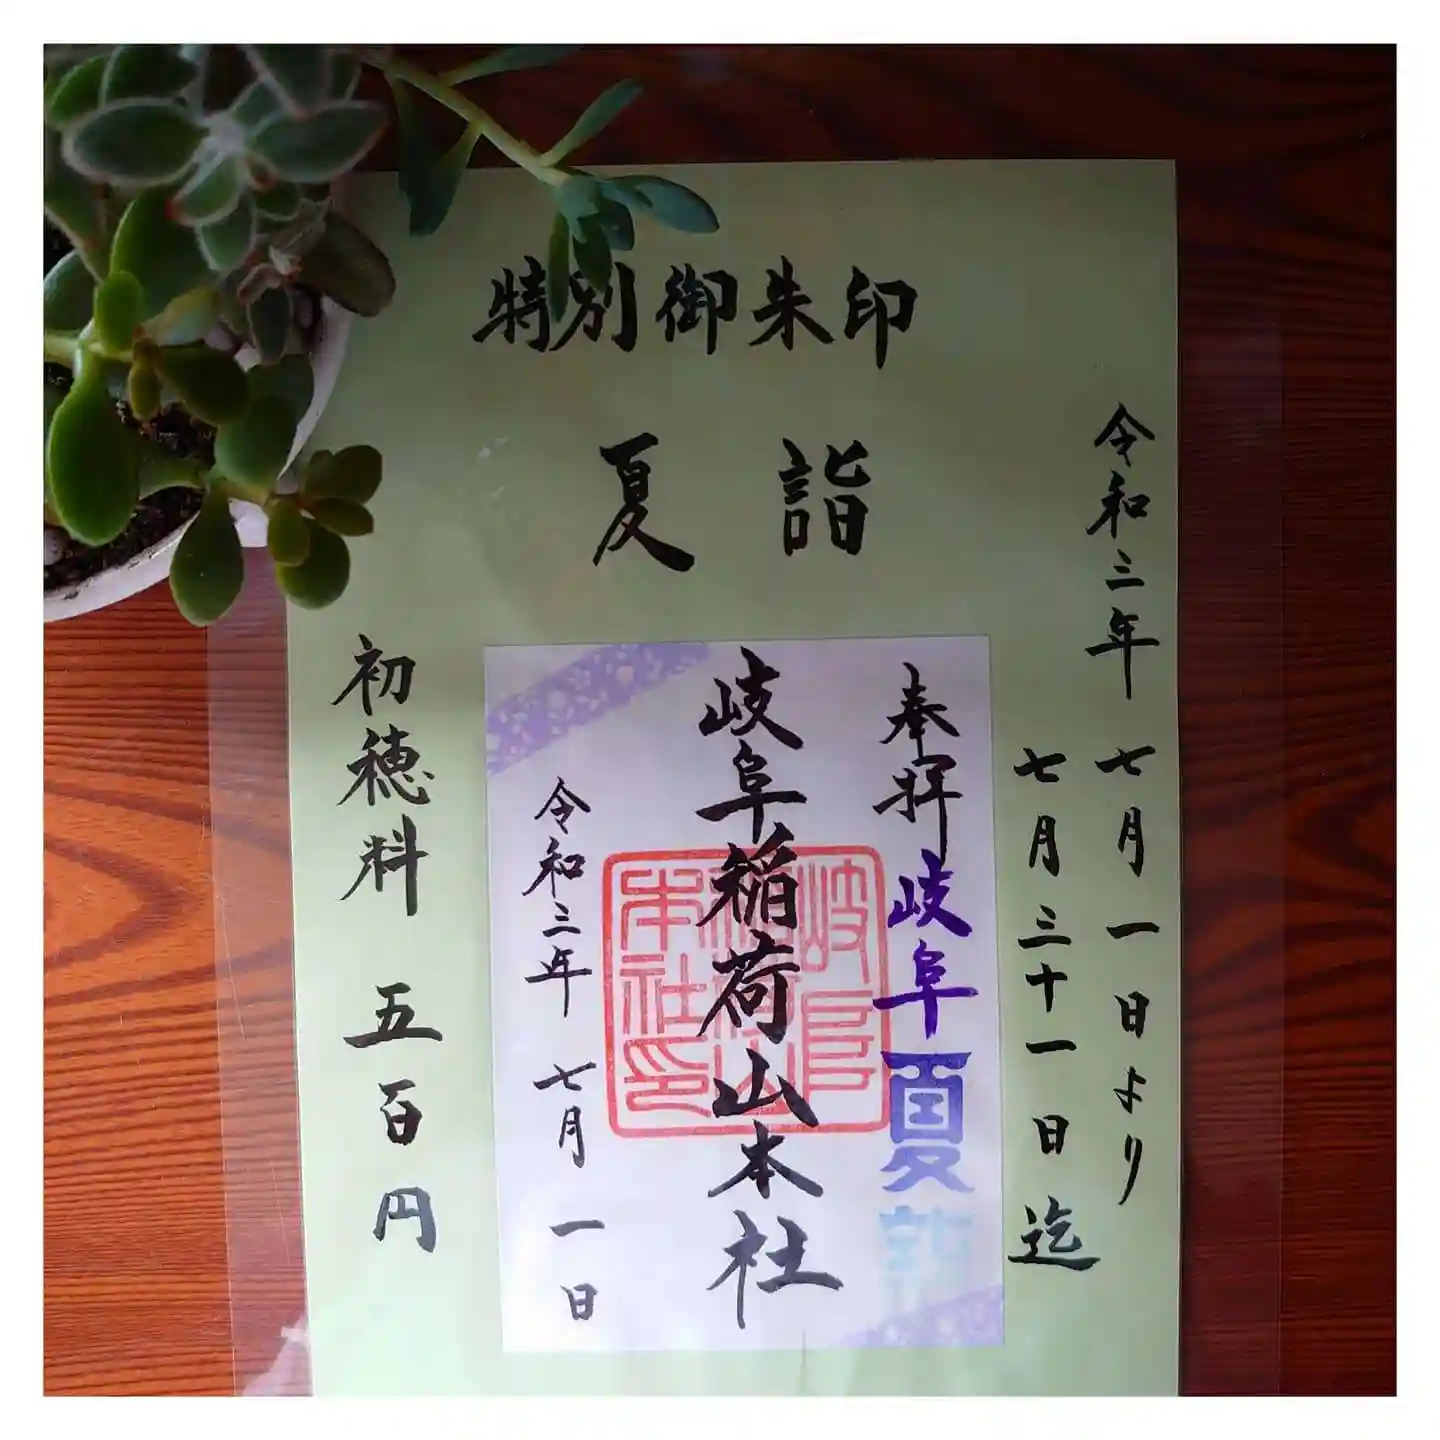 特別御朱印
夏詣
令和三年 七月一日より
七月三十一日迄
奉拝 岐阜夏詣
岐阜稲荷山本社
令和三年 七月一日
初穂料 五百円